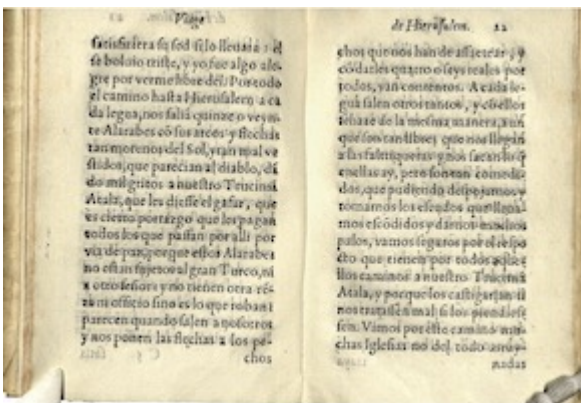 Viage
satisfiziera su sed si lo lleuara : el
se boluio triste, y yo fue algo ale-
gre por verme libre del. Por todo
el camino hasta Hierusalem a ca
da legua, nos salia quinze o veyn
te Alarabes cõ sus arcos y flechas
tan morenos del Sol, y tan mal ve
stidos, que parecian al diablo, dã
do mil gritos a nuestro Trucimã
Atala, que les diesse el gafar, que
es cierto portazgo que les pagan
todos los que passan por alli por
via de paz, porque estos Alarabes
no estan sujetos al gran Turco, ni
a otro señor y no tienen otra rẽ-
ta ni officio sino es lo que roban :
parecen quando salen a nosotros
y nos ponen las flechas a los pe-
C
chos
de Hierusalem. 22
chos que nos han de assaetear ; y
cõ darles quatro o seys reales por
todos, van contentos. A cada le-
gua salen otros tantos, y cõ ellos
se haze de la mesma manera, aun
que son tan libres que nos llegan
a las faltriqueras y nos sacan lo q̃
en ellas ay, pero son tan comedi-
dos, que pudiendo despojarnos y
tomarnos los
mos escõdidos y darnos muchos
palos, vamos seguros por el respe
cto que tienen por todos aque-
llos caminos a nuestro Trucimã
Atala, y porque los castigarian si
nos tratassen mal si los prendies-
sen. Vimos por este camino mu-
chas Iglesias no del todo arruy-
nadas